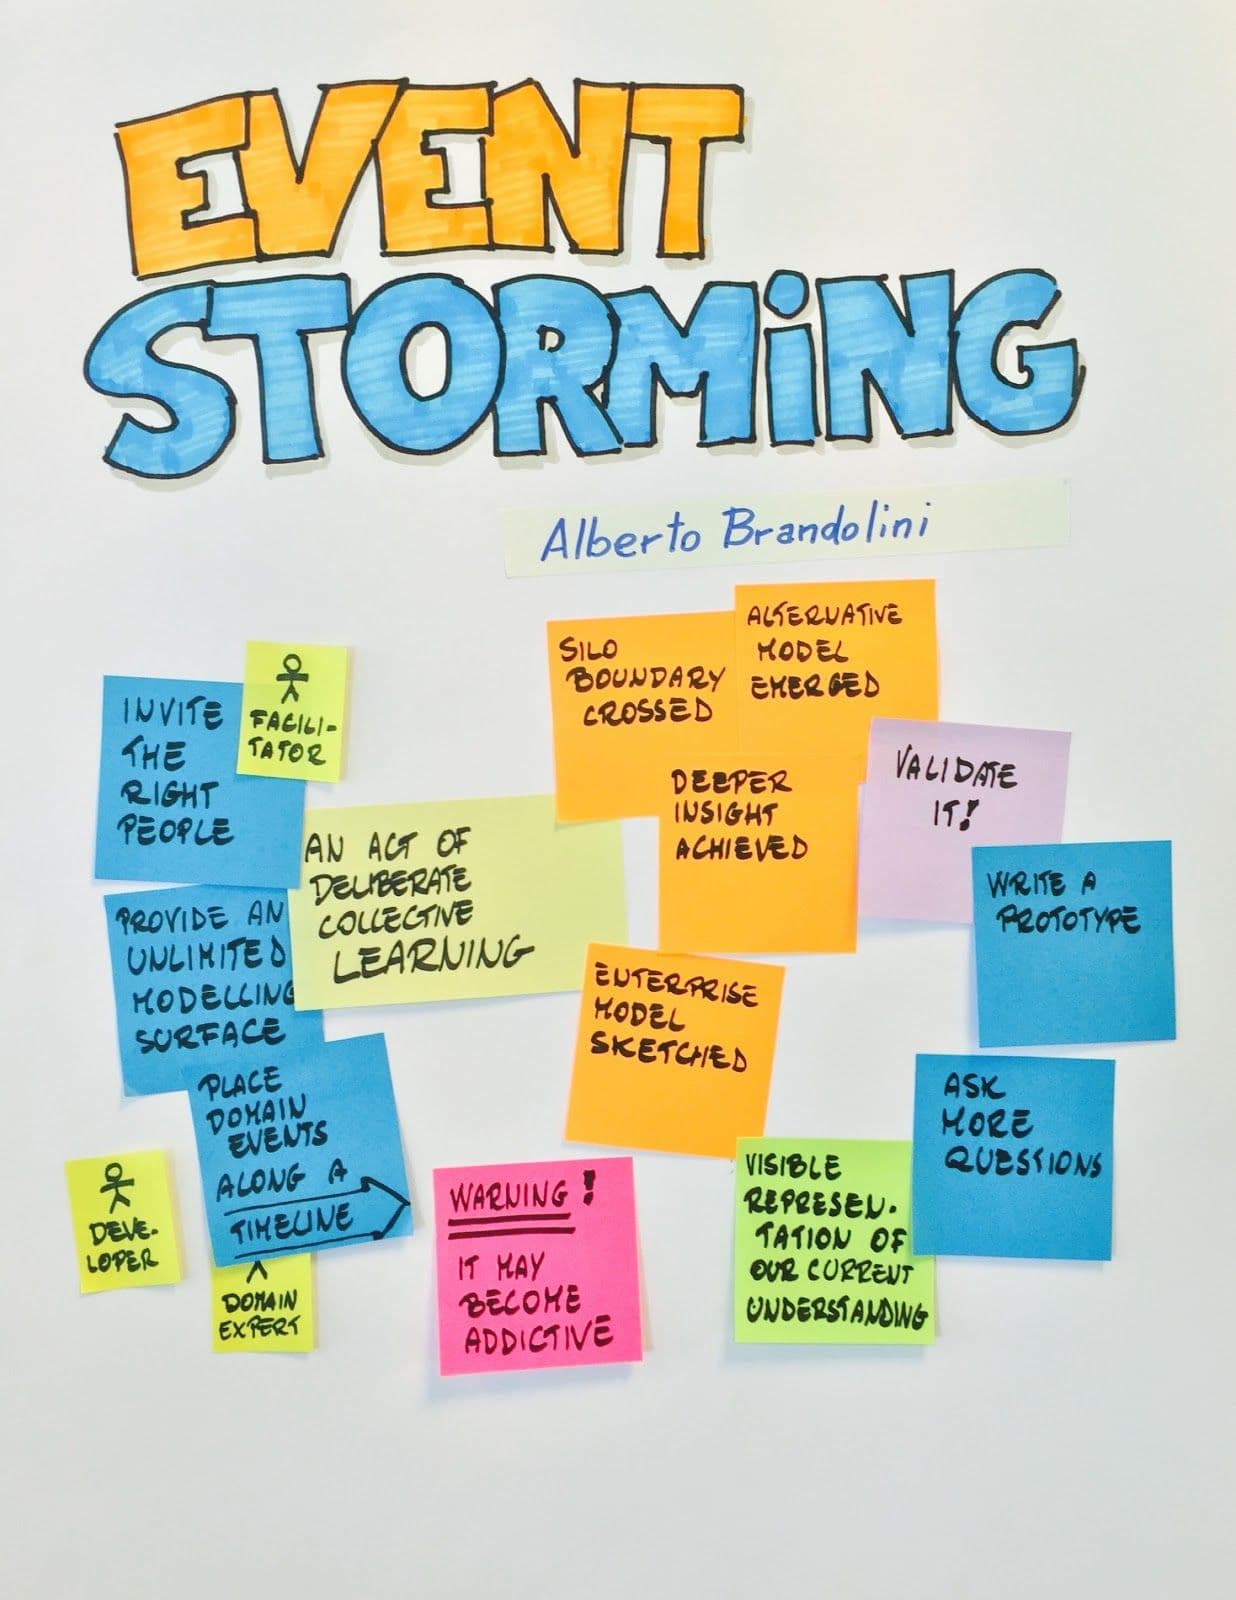 EVENT
STORMiNG
Alberto Brandolini
INVITE
THE
RIGHT
PEOPLE
FACILI-
TATOR
PROVIDE AN
UNLIMITED
MODELLING
SURFACE
AN ACT OF
DELIBERATE
COLLECTIVE
LEARNING
PLACE
DOMAIN
EVENTS
ALONG A
TIMELINE
DEVE-
LOPER
DOMAIN
EXPERT
SILO
BOUNDARY
CROSSED
ALTERNATIVE
MODEL
EMERGED
DEEPER
INSIGHT
ACHIEVED
VALIDATE
IT!
WRITE A
PROTOTYPE
ENTERPRISE
MODEL
SKETCHED
ASK
MORE
QUESTIONS
WARNING!
IT MAY
BECOME
ADDICTIVE
VISIBLE
REPRESEN-
TATION OF
OUR CURRENT
UNDERSTANDING